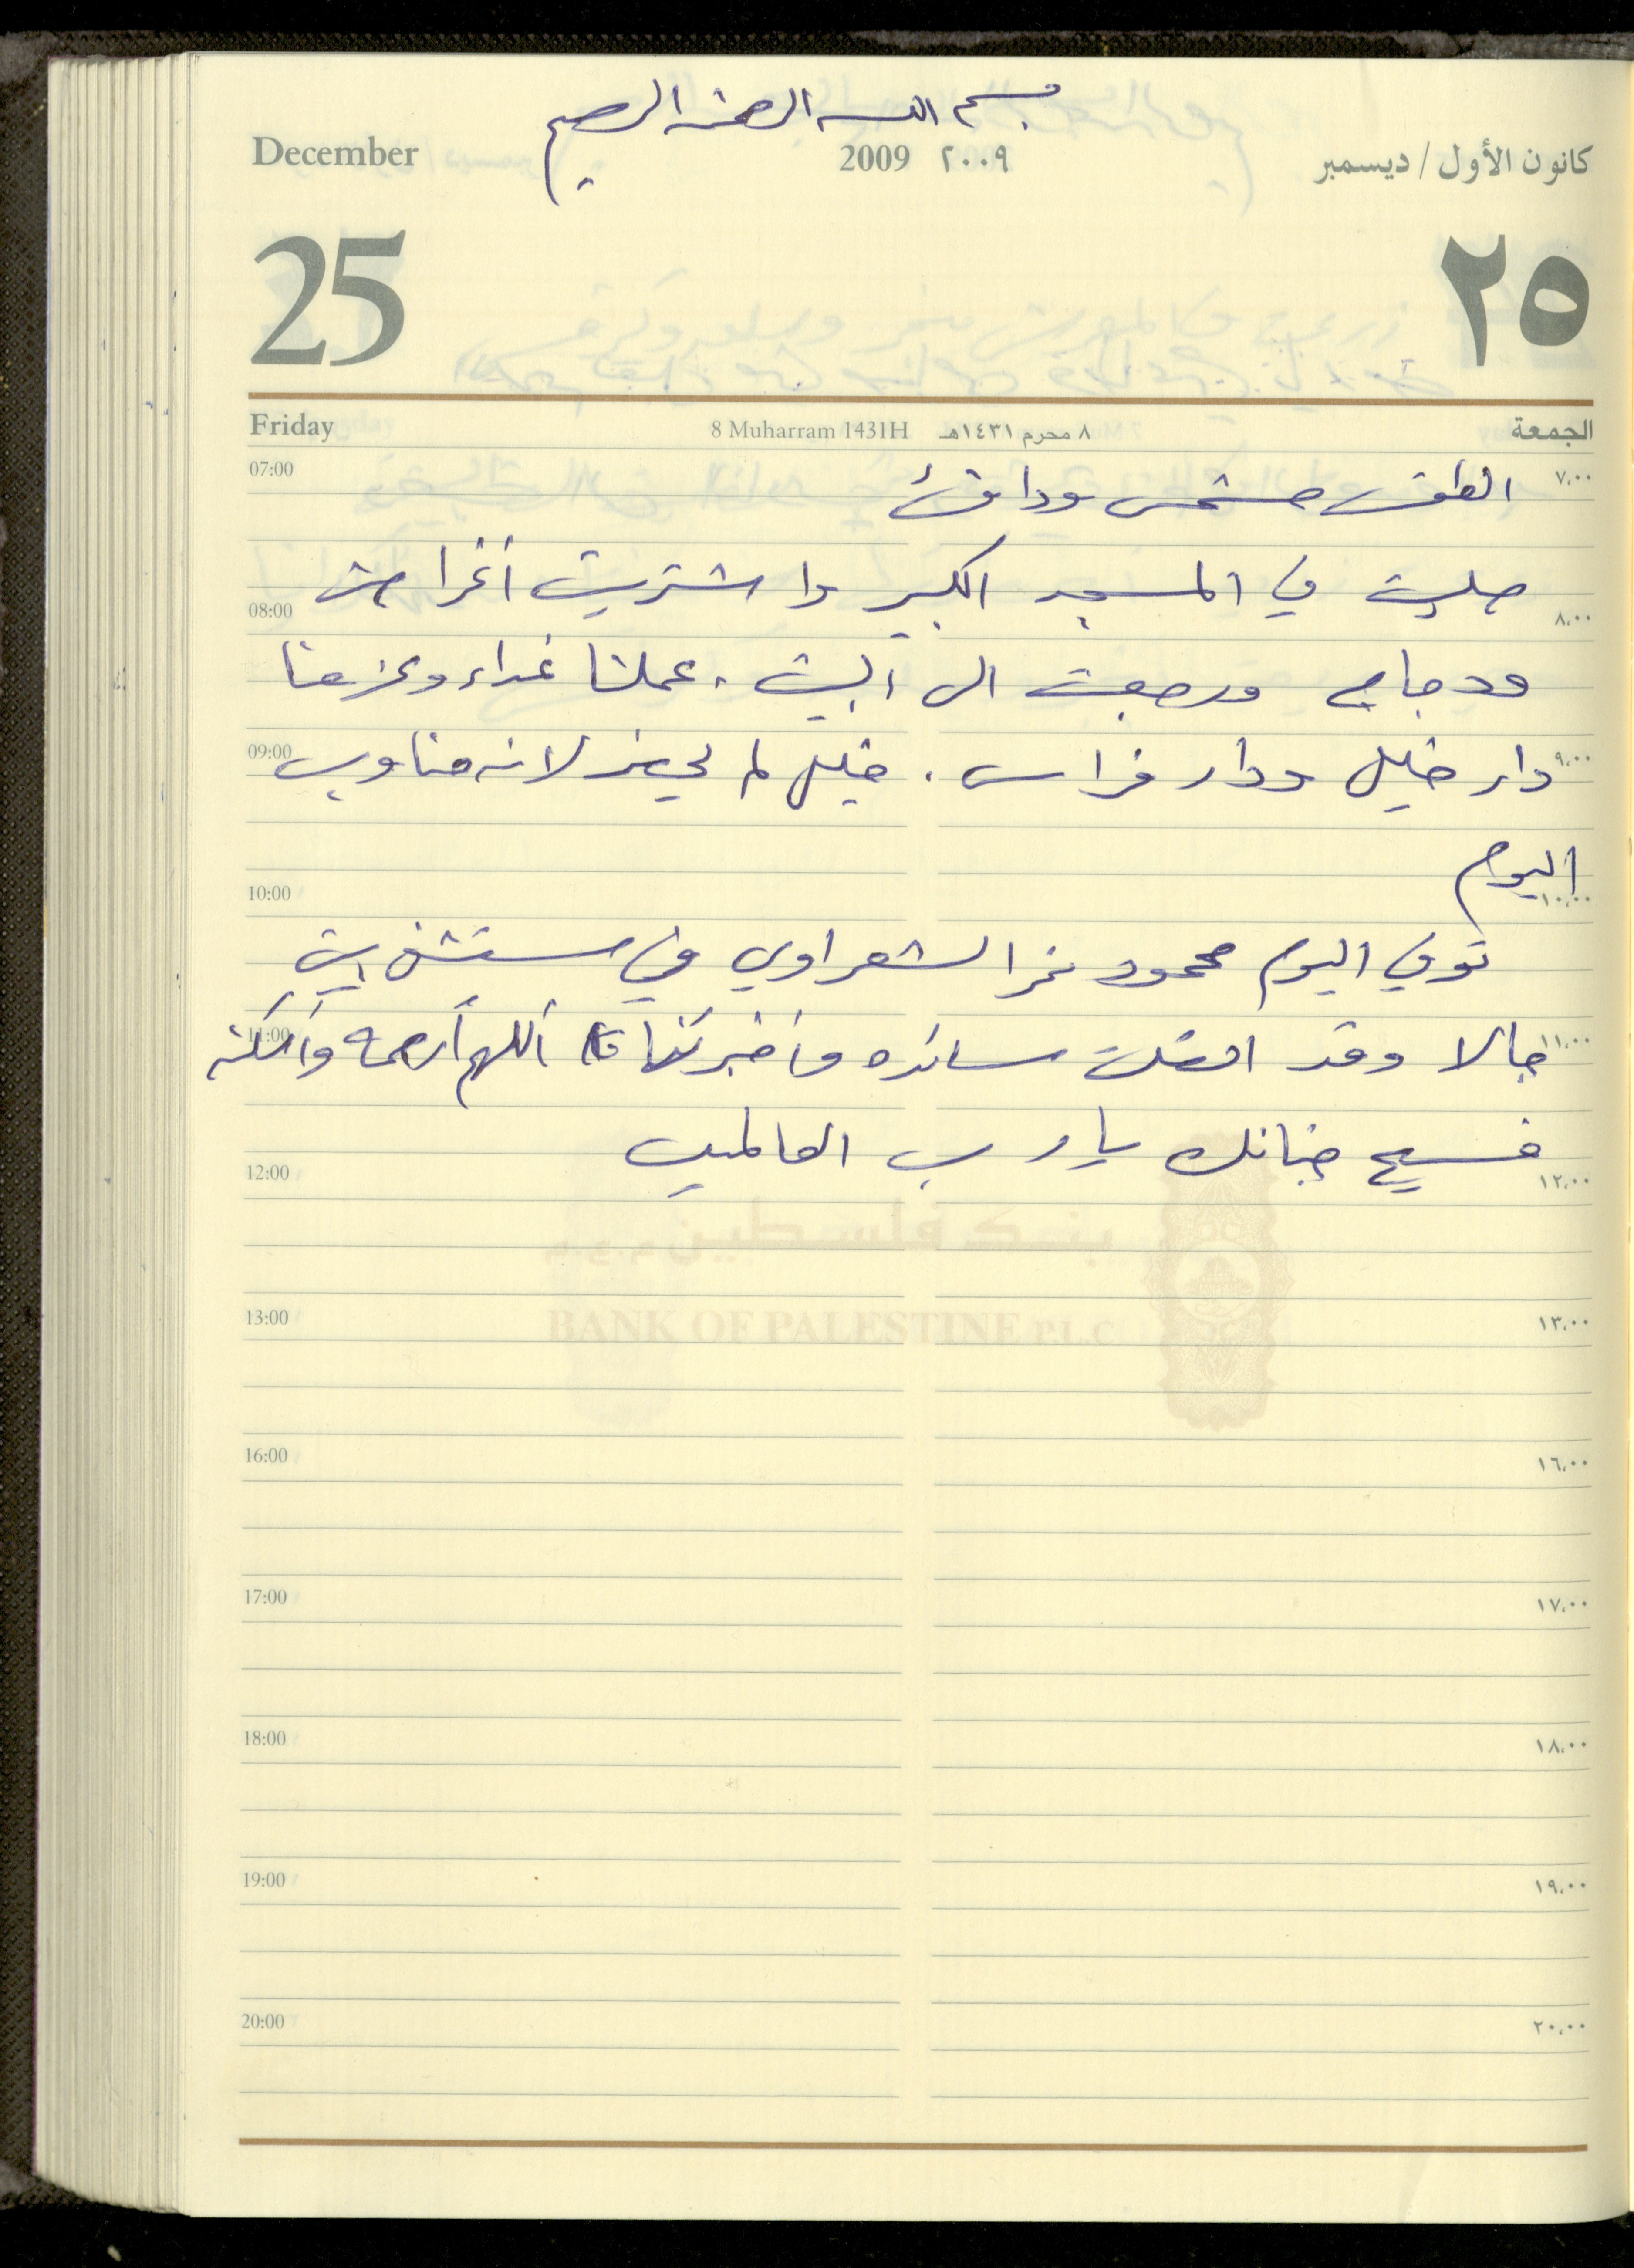 بسم الله الرحمن الرحيم
December 2009 ٢٠٠٩ كانون الأول / ديسمبر
25 ٢٥
Friday 8 Muharram 1431H ٨ محرم ١٤٣١هـ الجمعة
07:00 الطقس مشمس ودافئ ٧,٠٠
صليت في المسجد الكبير واشتريت أغراض
08:00 ٨,٠٠
ودجاج ورجعت الى البيت . عملنا غداء وعزمنا
09:00 دار خليل ودار فراس . خليل لم يحضر لانه مناوب ٩,٠٠
اليوم
10:00 ١٠,٠٠
توفي اليوم محمود نمر الشعراوي في مستشفى
11:00 وقد اتصلت سائده وأخبرتنا اللهم أرحمه وأسكنه ١١,٠٠
فسيح جنانك يا رب العالمين
12:00 ١٢,٠٠
بنك فلسطين م.ع.م
BANK OF PALESTINE P.L.C
13:00 ١٣,٠٠
16:00 ١٦,٠٠
17:00 ١٧,٠٠
18:00 ١٨,٠٠
19:00 ١٩,٠٠
20:00 ٢٠,٠٠